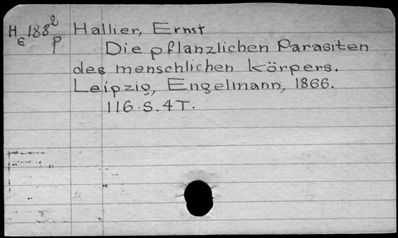 HE 188² Hallier, Ernst
p Die pflanzlichen Parasiten
des menschlichen Körpers.
Leipzig, Engelmann, 1866.
116 S. 4 T.